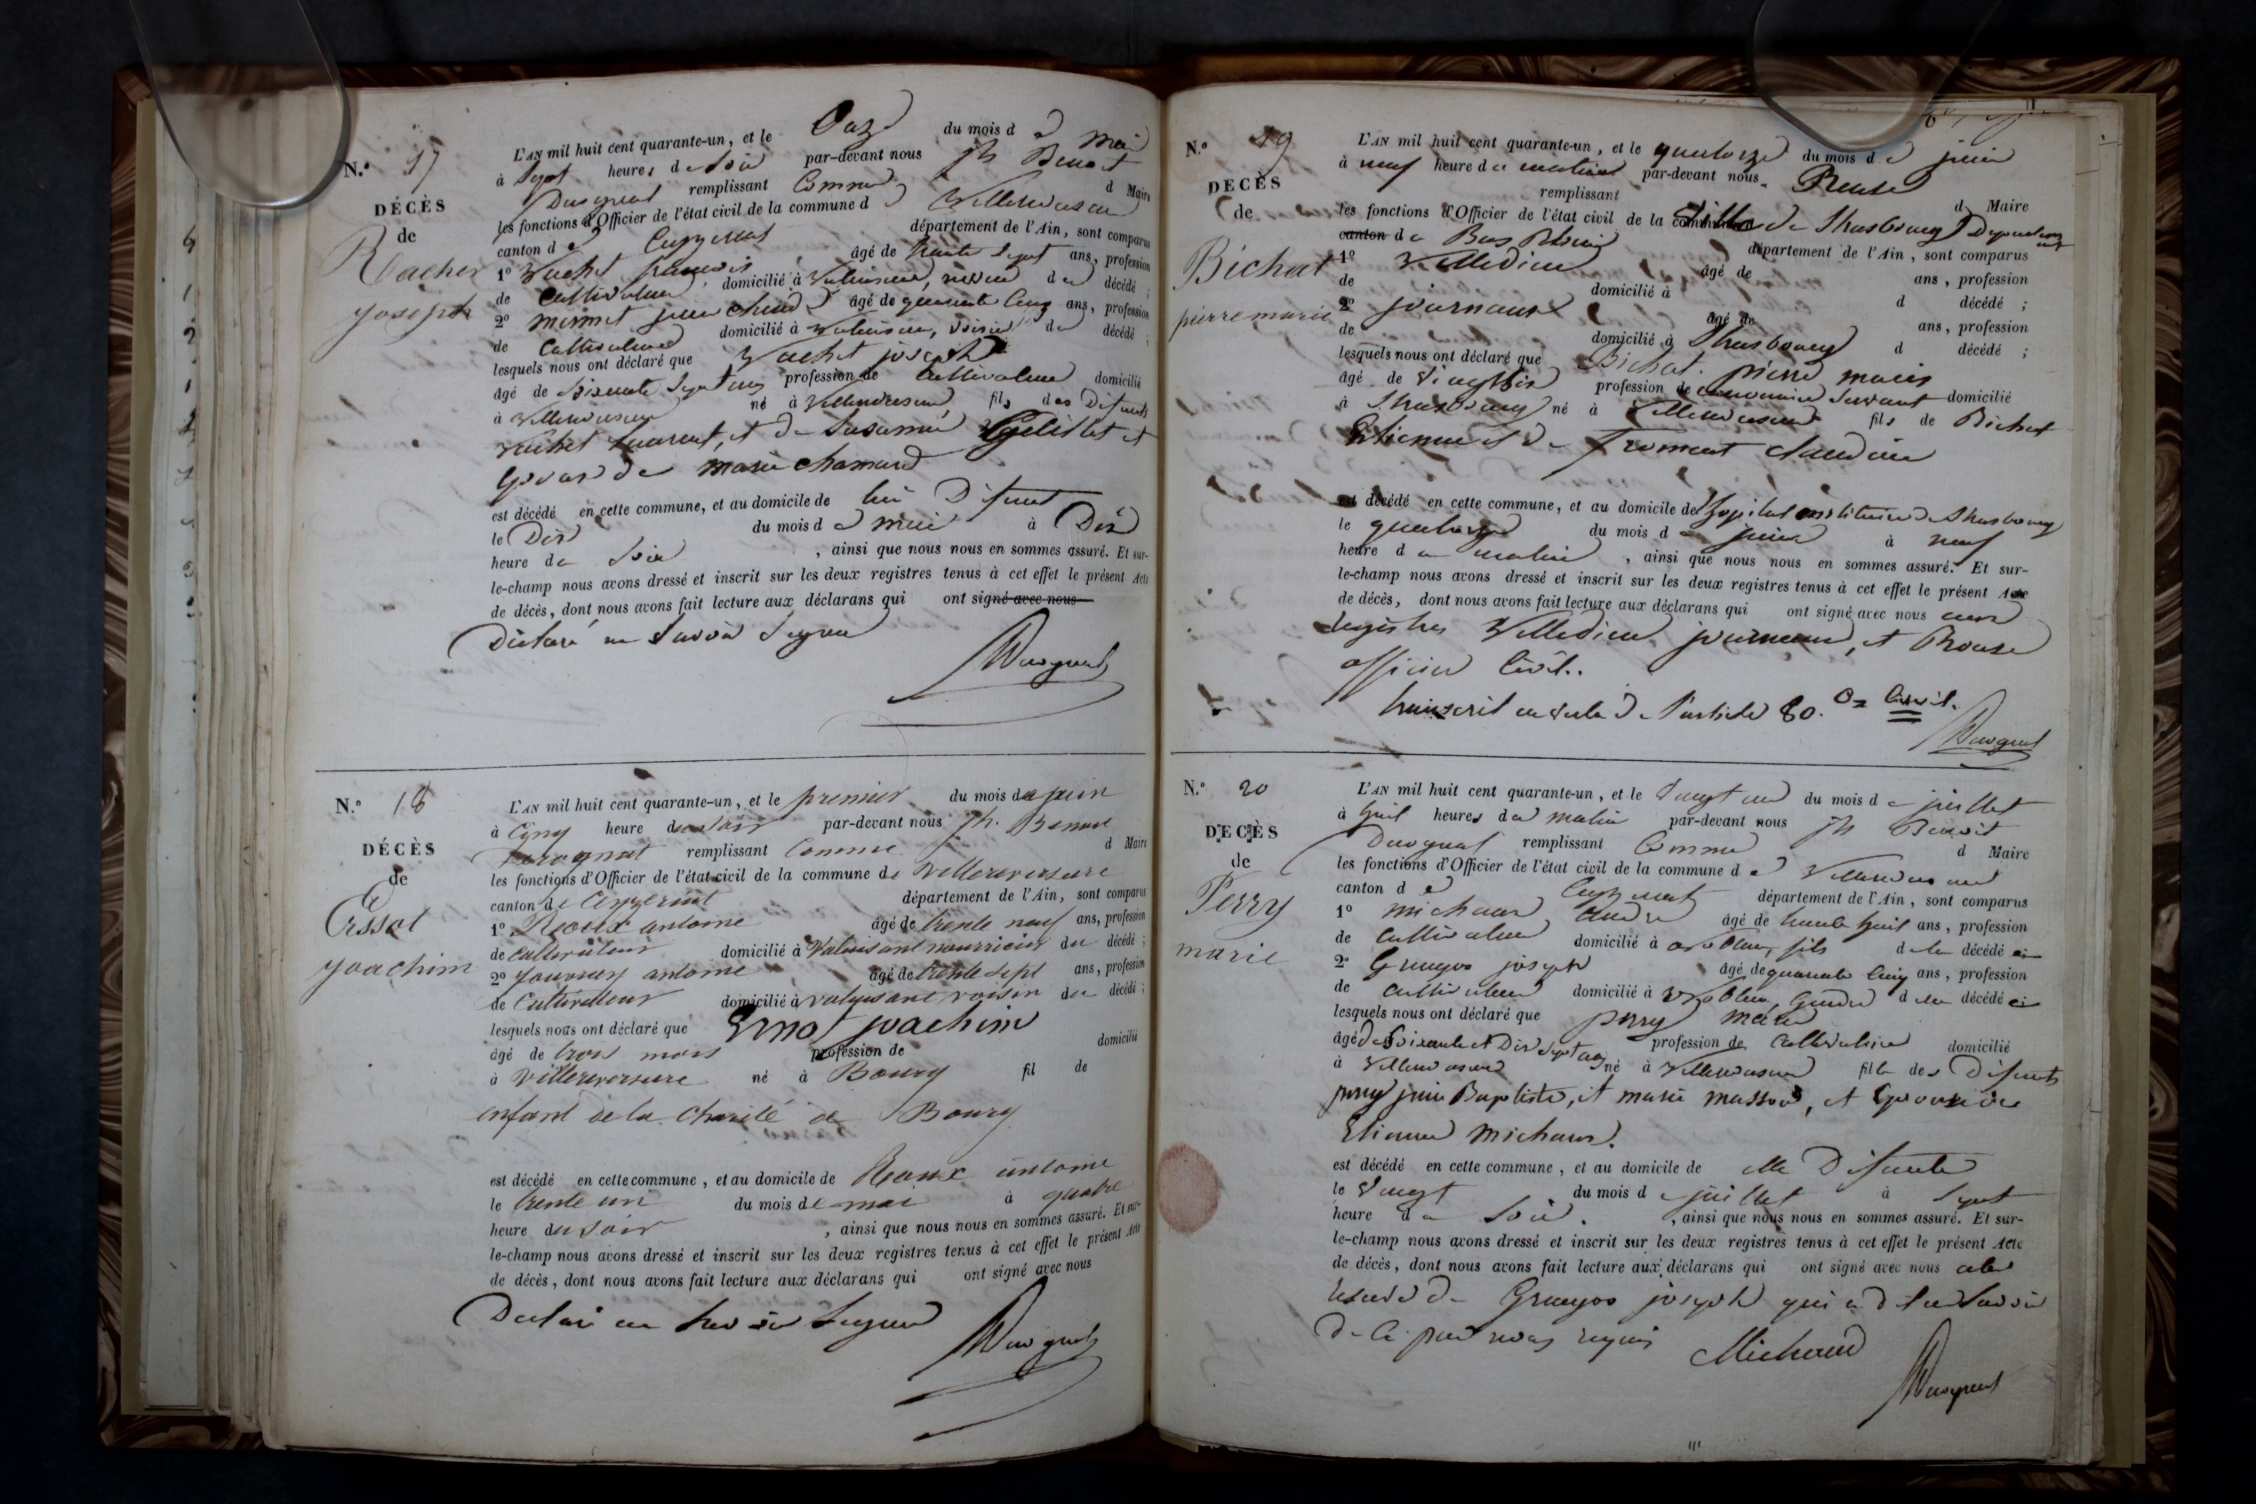 N.° 17
DÉCÈS
de
Joseph
L'AN mil huit cent quarante-un, et le Onze du mois de mai
à Sept heures du Soir par-devant nous Jh Benoit
remplissant Comme d Maire
les fonctions d'Officier de l'état civil de la commune d Villereversure
canton de Ceyzeriat département de l'Ain, sont comparus
1° Vachet françois âgé de trente Sept ans, profession
de Cultivateur, domicilié à Valuisant, neveu du décédé ;
2° âgé de quarante Cinq ans, profession
de Cultivateur domicilié à Valuisant, voisin du décédé ;
lesquels nous ont déclaré que Vachet joseph
âgé de Soixante Sept ans profession de Cultivateur domicilié
à Villereversure né à Villereversure fils des Défunts
Vachet Laurent, et de Susanne et
Epoux de marie chanard
est décédé en cette commune, et au domicile de lui Défunt
le Dix du mois de mai à Dix
heure du Soir, ainsi que nous nous en sommes assuré. Et sur-
le-champ nous avons dressé et inscrit sur les deux registres tenus à cet effet le présent Acte
de décès, dont nous avons fait lecture aux déclarans qui ont signé avec nous
Déclaré ne Savoir Signer
N.° 18
DÉCÈS
de
joachim
L'AN mil huit cent quarante-un, et le premier du mois de juin
à Cinq heure du soir par-devant nous Jh. Benoit
remplissant Comme d Maire
les fonctions d'Officier de l'état civil de la commune de Villereversure
canton de Ceyzeriat département de l'Ain, sont comparus
1° Roux antoine âgé de trente neuf ans, profession
de cultivateur domicilié à Valuisant nourricier du décédé ;
2° antoine âgé de trente sept ans, profession
de Cultivateur domicilié à valuisant voisin du décédé ;
lesquels nous ont déclaré que joachim
âgé de trois mois profession de domicilié
à villereversure né à Bourg fil de
enfant de la Charité de Bourg
est décédé en cette commune, et au domicile de Roux antoine
le trente un du mois de mai à quatre
heure du soir, ainsi que nous nous en sommes assuré. Et sur-
le-champ nous avons dressé et inscrit sur les deux registres tenus à cet effet le présent Acte
de décès, dont nous avons fait lecture aux déclarans qui ont signé avec nous
Declaré ne Savoir Signer
N.° 19
DÉCÈS
de
Bichat
pierre marie
L'AN mil huit cent quarante-un, et le quatorze du mois de juin
à neuf heure du matin par-devant nous
remplissant d Maire
les fonctions d'Officier de l'état civil de la commune Ville de Strasbourg Département
canton du Bas Rhin département de l'Ain, sont comparus
1° Villedieu âgé de ans, profession
de domicilié à d décédé ;
2° journaux âgé de ans, profession
de domicilié à Strasbourg d décédé ;
lesquels nous ont déclaré que Bichat pierre marie
âgé de profession de canonnier Servant domicilié
à Strasbourg né à Villereversure fils de Bichat
Etienne et de Froment claudine
est décédé en cette commune, et au domicile de l'hopital militaire de Strasbourg
le quatorze du mois de juin à neuf
heure du matin, ainsi que nous nous en sommes assuré. Et sur-
le-champ nous avons dressé et inscrit sur les deux registres tenus à cet effet le présent Acte
de décès, dont nous avons fait lecture aux déclarans qui ont signé avec nous aux
registres Villedieu journaux, et
officier Civil.
transcrit en vertu de l'article 80. Civil.
N.° 20
DÉCÈS
de
Perry
marie
L'AN mil huit cent quarante-un, et le vingt un du mois de juillet
à huit heures du matin par-devant nous Jh Benoit
remplissant Comme d Maire
les fonctions d'Officier de l'état civil de la commune de Villereversure
canton de Ceyzeriat département de l'Ain, sont comparus
1° michaud âgé de trente huit ans, profession
de Cultivateur domicilié à fils de la décédé
2° joseph âgé de quarante Cinq ans, profession
de Cultivateur domicilié à Gendre de la décédé
lesquels nous ont déclaré que perry marie
âgé de Soixante et Dix Sept ans profession de Cultivatrice domicilié
à Villereversure né à Villereversure fille des Défunts
perry jean Baptiste, et marie masson, et
Etienne michaud.
est décédé en cette commune, et au domicile de elle Défunte
le Vingt du mois de juillet à Sept
heure du Soir., ainsi que nous nous en sommes assuré. Et sur-
le-champ nous avons dressé et inscrit sur les deux registres tenus à cet effet le présent Acte
de décès, dont nous avons fait lecture aux déclarans qui ont signé avec nous
joseph qui a dit ne Savoir
de ce par nous requis
Michaud